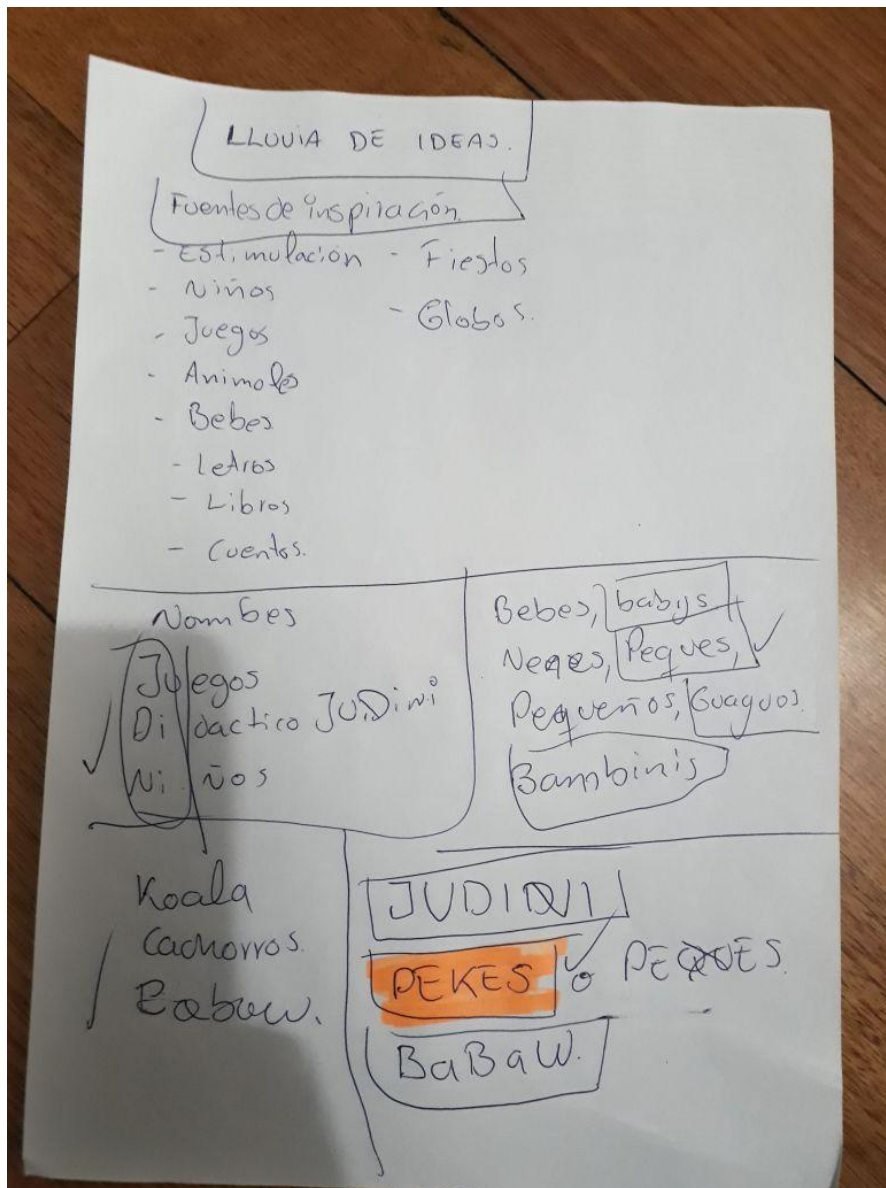 LLUVIA DE IDEAS.
Fuentes de inspiración.
- Estimulación
- Niños
- Juegos
- Animales
- Bebes
- Letras
- Libros
- Cuentos.
- Fiestas
- Globos.
Nombes
Juegos
Didactico JUDini
Niños
Bebes, babys
Neqes, Peques,
Pequeños, Guaguas.
Bambinis
Koala
Cachorros.
Babaw.
JUDINI
PEKES o PEQUES.
BaBaW.